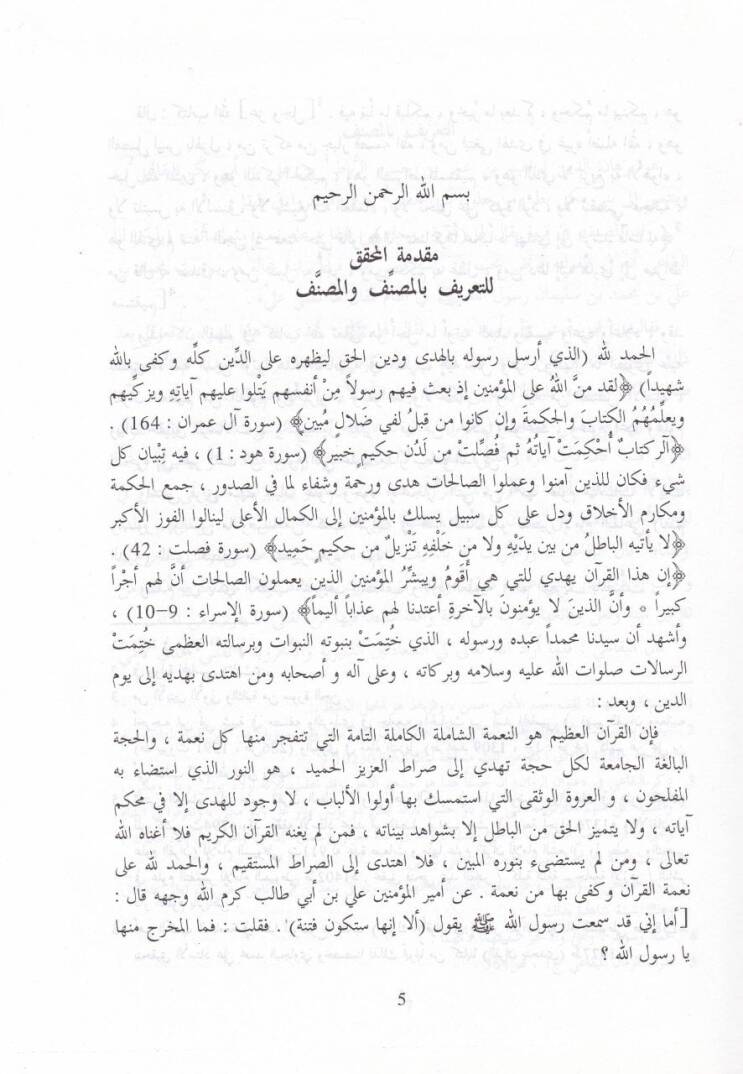 بسم الله الرحمن الرحيم
مقدمة المحقق
للتعريف بالمصنِّف والمصنَّف
الحمد لله (الذي أرسل رسوله بالهدى ودين الحق ليظهره على الدِّين كلِّه وكفى بالله
شهيداً) ﴿لقد منَّ اللهُ على المؤمنين إذ بعث فيهم رسولاً مِنْ أنفسهم يَتْلوا عليهم آياتِهِ ويزكِّيهم
ويعلِّمُهُمُ الكِتابَ والحكمةَ وإن كانوا من قبلُ لفي ضَلالٍ مُبين﴾ (سورة آل عمران : 164) .
﴿آلر كتابٌ أُحْكِمَتْ آياتُهُ ثم فُصِّلتْ من لَدُن حكيمٍ خبير﴾ (سورة هود : 1) ، فيه تِبْيان كل
شيء فكان للذين آمنوا وعملوا الصالحات هدى ورحمة وشفاء لما في الصدور ، جمع الحكمة
ومكارم الأخلاق ودل على كل سبيل يسلك بالمؤمنين إلى الكمال الأعلى لينالوا الفوز الأكبر
﴿لا يأتيه الباطلُ من بين يدَيْهِ ولا من خَلْفِهِ تَنْزيلٌ من حكيمٍ حَمِيد﴾ (سورة فصلت : 42) .
﴿إن هذا القرآن يهدي للتي هي أَقَومُ ويبشِّرُ المؤمنين الذين يعملون الصالحات أنَّ لهم أجْراً
كبيراً * وأنَّ الذينَ لا يؤمنونَ بالآخرةِ أعتدنا لهم عذاباً أليماً﴾ (سورة الإسراء : 9–10) ،
وأشهد أن سيدنا محمداً عبده ورسوله ، الذي خُتِمَتْ بنبوته النبوات وبرسالته العظمى خُتِمَتْ
الرسالات صلوات الله عليه وسلامه وبركاته ، وعلى آله و أصحابه ومن اهتدى بهديه إلى يوم
الدين ، وبعد :
فإن القرآن العظيم هو النعمة الشاملة الكاملة التامة التي تتفجر منها كل نعمة ، والحجة
البالغة الجامعة لكل حجة تهدي إلى صراط العزيز الحميد ، هو النور الذي استضاء به
المفلحون ، و العروة الوثقى التي استمسك بها أولوا الألباب ، لا وجود للهدى إلا في محكم
آياته ، ولا يتميز الحق من الباطل إلا بشواهد بيناته ، فمن لم يغنه القرآن الكريم فلا أغناه الله
تعالى ، ومن لم يستضىء بنوره المبين ، فلا اهتدى إلى الصراط المستقيم ، والحمد لله على
نعمة القرآن وكفى بها من نعمة . عن أمير المؤمنين علي بن أبي طالب كرم الله وجهه قال :
[أما إني قد سمعت رسول الله ﷺ يقول (ألا إنها ستكون فتنة) . فقلت : فما المخرج منها
يا رسول الله ؟
5